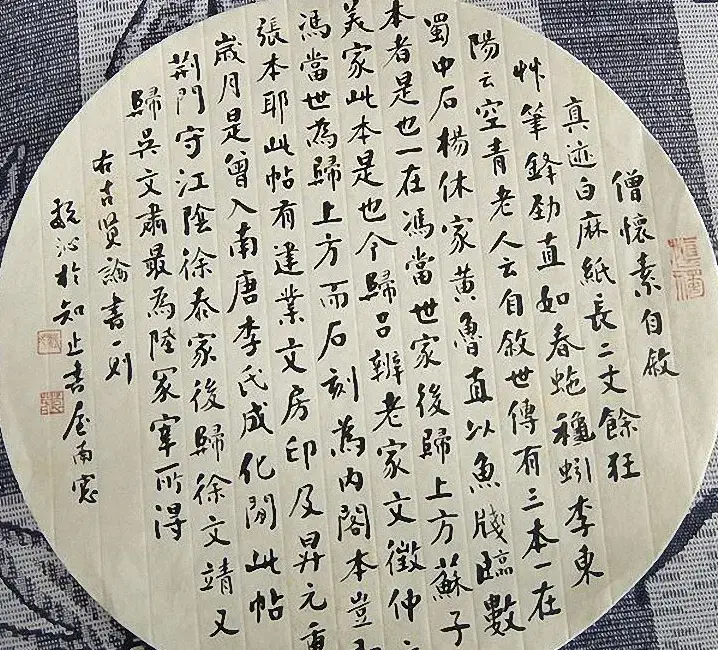 僧懷素自敘
真迹白麻紙長二丈餘狂
艸筆鋒勁直如春虵穐蚓李東
陽云空青老人云自敘世傳有三本一在
蜀中石楊休家黃魯直以魚牋臨數
本者是也一在馮當世家後歸上方蘇子
美家此本是也今歸吕辨老家文徵仲
馮當世為歸上方而石刻為内閣本豈
張本耶此帖有建業文房印及昇元重
歲月是曾入南唐李氏成化間此帖
荊門守江陰徐泰家後歸徐文靖又
歸吳文肅最為陸冢宰所得
右古賢論書一則
於知止書屋南窓